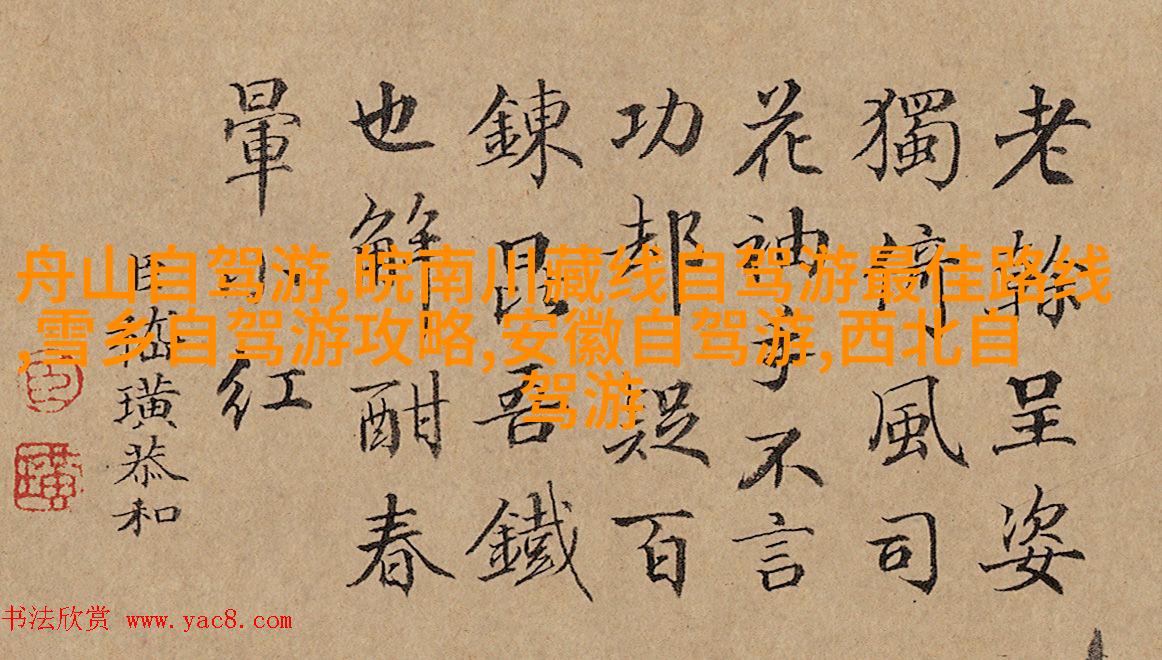 老榦呈姿
獨風司
花神事不言
功却疑百
鍊昆吾鐵
也解酣春
暈小紅
臣嵇璜恭和
臣
璜
舟山自驾游,皖南川藏线自驾游最佳路线
,雪乡自驾游攻略,安徽自驾游,西北自
驾游
书法欣赏 www.yac8.com